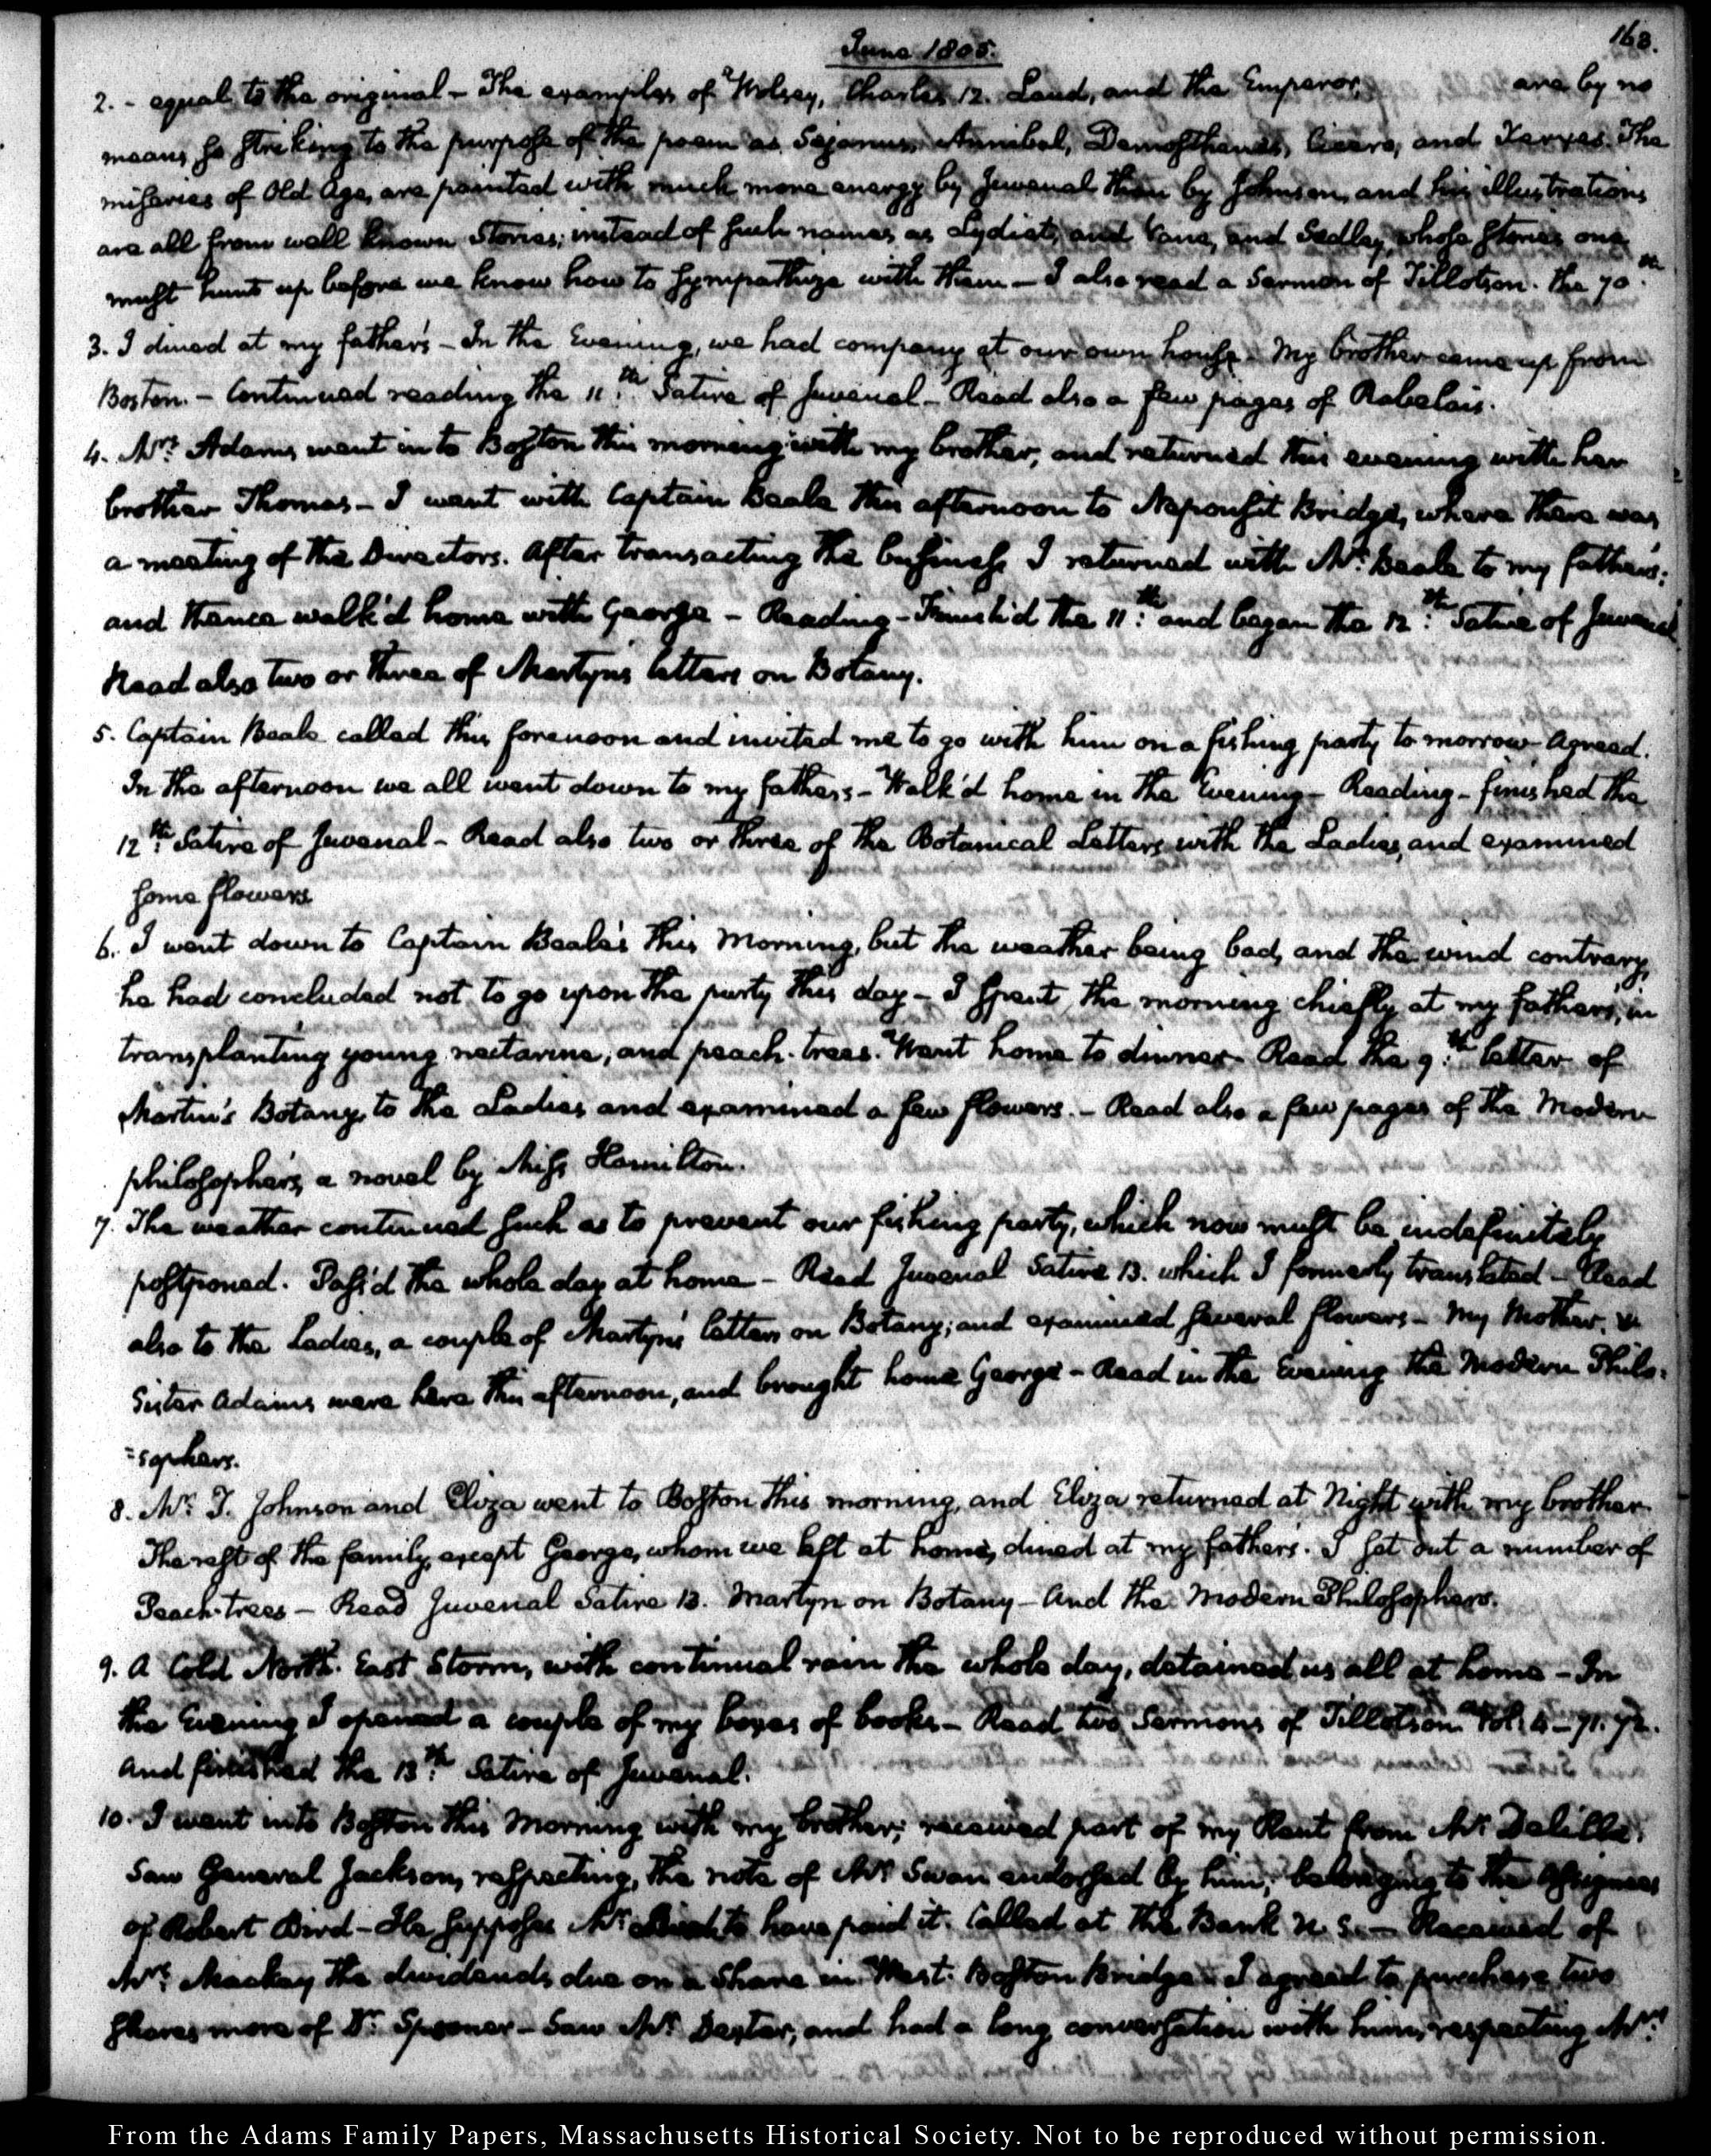 June 1805.
163.
2. - equal to the original - The examples of Wolsey, Charles 12. Laud, and the Emperor, are by no
means so striking to the purpose of the poem as Sejanus, Annibal, Demosthenes, Cicero, and Xerxes. The
miseries of Old Age, are painted with much more energy by Juvenal than by Johnson, and his illustrations
are all from well known Stories; instead of such names as Lydiat, and Vane, and Sedley, whose stories one
must hunt up before we know how to sympathize with them - I also read a Sermon of Tillotson. the 70.th
3. I dined at my father's - In the Evening, we had company at our own house - My brother came up from
Boston. - Continued reading the 11.th Satire of Juvenal - Read also a few pages of Rabelais.
4. Mrs. Adams went in to Boston this morning with my brother, and returned this evening with her
brother Thomas - I went with Captain Beale this afternoon to Neponsit Bridge, where there was
a meeting of the Directors. After transacting the business I returned with Mr. Beale to my father's;
and thence walk'd home with George - Reading - Finish'd the 11.th and began the 12.th Satire of Juvenal
Read also two or three of Martyn's letters on Botany.
5. Captain Beale called this forenoon and invited me to go with him on a fishing party to morrow - Agreed.
In the afternoon we all went down to my father's - Walk'd home in the Evening - Reading - finished the
12.th Satire of Juvenal - Read also two or three of the Botanical Letters with the Ladies, and examined
some flowers
6. I went down to Captain Beale's this Morning, but the weather being bad, and the wind contrary,
he had concluded not to go upon the party this day - I spent the morning chiefly at my father's, in
transplanting young nectarine, and peach-trees. Went home to dinner - Read the 9.th letter of
Martin's Botany, to the Ladies and examined a few flowers. - Read also a few pages of the Modern
philosophers, a novel by Miss Hamilton.
7. The weather continued such as to prevent our fishing party, which now must be indefinitely
postponed. Pass'd the whole day at home - Read Juvenal Satire 13. which I formerly translated - Read
also to the Ladies, a couple of Martyn's letters on Botany; and examined several flowers - My Mother, &
Sister Adams were here this afternoon, and brought home George - Read in the Evening the Modern Philo-
=sophers.
8. Mr. T. Johnson and Eliza went to Boston this morning, and Eliza returned at Night with my brother.
The rest of the family, except George, whom we left at home, dined at my father's. I set out a number of
Peach-trees - Read Juvenal Satire 13. Martyn on Botany - And the Modern Philosophers.
9. A Cold North-East Storm, with continual rain the whole day, detained us all at home - In
the Evening I opened a couple of my boxes of books - Read two Sermons of Tillotson. Vol. 4 - 71. 72.
And finished the 13.th Satire of Juvenal.
10. I went into Boston this Morning with my brother; received part of my Rent from Mr.
Saw General Jackson, respecting, the note of Mr. Swan endorsed by him, belonging to the Assignees
of Robert Bird - He supposes Mr. to have paid it. Called at the Bank U. S. - Received of
Mrs. Mackay the dividends due on a Share in West-Boston Bridge - I agreed to purchase two
shares more of Dr. Spooner - Saw Mr. Dexter, and had a long conversation with him, respecting Mrs.
From the Adams Family Papers, Massachusetts Historical Society. Not to be reproduced without permission.